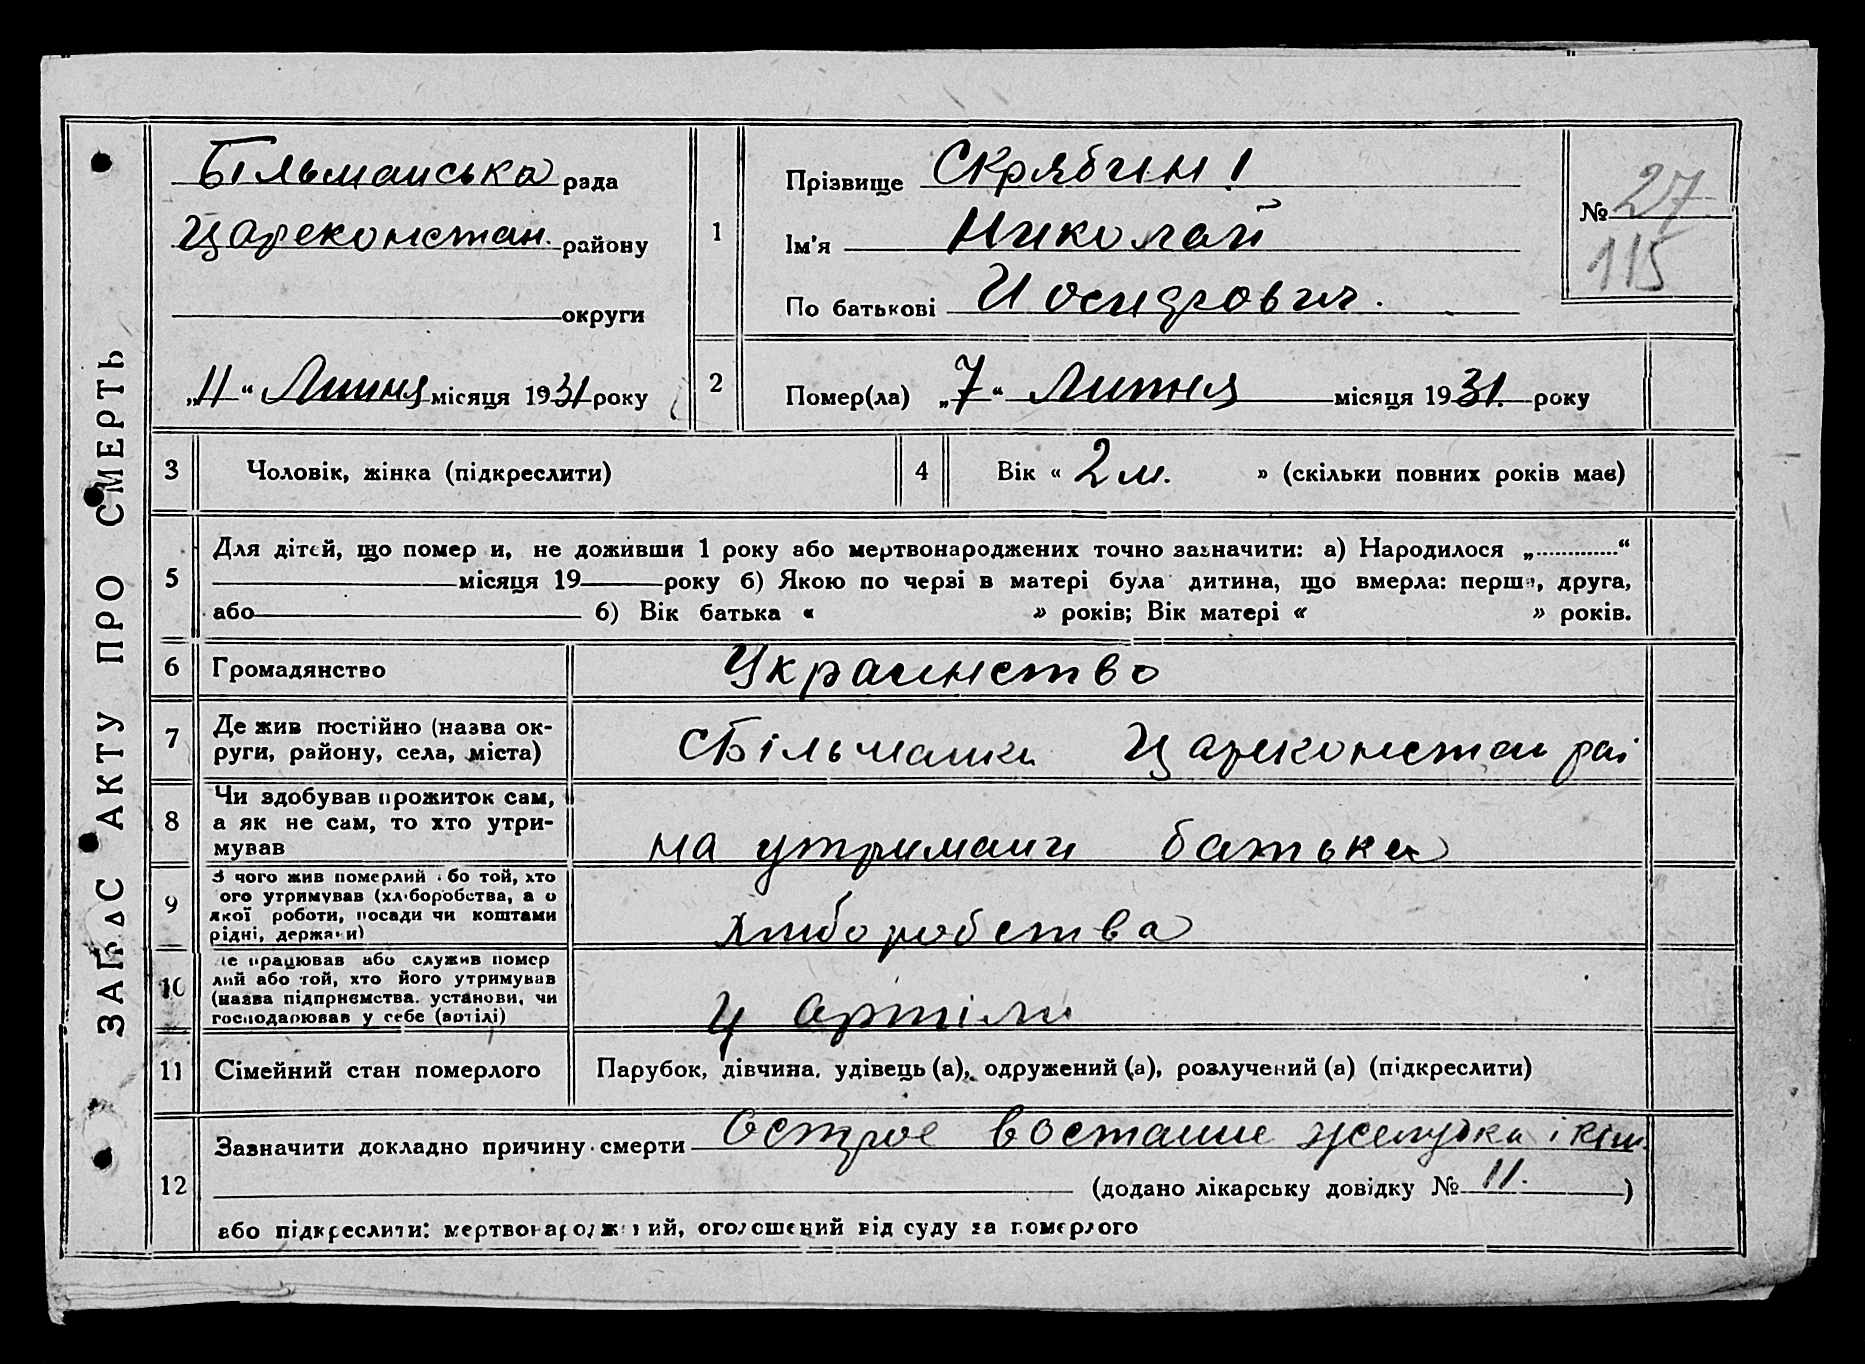 ЗАПАС АКТУ ПРО СМЕРТЬ
Більманська рада
Цареконстан. району
округи
„11“ Липня місяця 1931 року
1
Прізвище Скрябин
Ім'я Николай
По батькові Иосифович.
№ 27
115
2
Помер(ла) „7“ Липня місяця 1931. року
3 Чоловік, жінка (підкреслити)
4 Вік « 2 м. » (скільки повних років має)
5
Для дітей, що помер и, не доживши 1 року або мертвонароджених точно зазначити: а) Народилося „.............“
місяця 19 року б) Якою по черзі в матері була дитина, що вмерла: перша, друга,
або б) Вік батька « » років; Вік матері « » років.
6 Громадянство Украинство
7 Де жив постійно (назва ок-
руги, району, села, міста)
с Більманка Цареконстан рай
8 Чи здобував прожиток сам,
а як не сам, то хто утри-
мував
на утримани батька
9 З чого жив померлий або той, хто
ого утримував (хліборобства, а о
якої роботи, посади чи коштами
рідні, держави)
хлиборобства
10 е працював або служив помер
лий або той, хто його утримував
(назва підприємства. установи, чи
господарював у себе (артілі)
у артіли
11 Сімейний стан померлого Парубок, дівчина, удівець (а), одружений (а), розлучений (а) (підкреслити)
12
Зазначити докладно причину смерти Острое желудка і киш.
(додано лікарську довідку № 11. )
або підкреслити: мертвонароджений, оголошений від суду за померлого